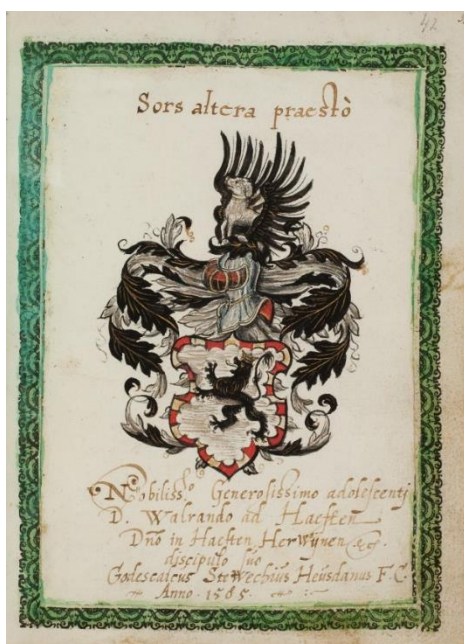 42
Sors altera praestò
Nobiliss.º Generosissimo adolescentj
D. Walrando ad Haeften
Dño in Haeften Herwÿnen &c.
discipulo suo
Godescalcus Stewechius Heusdanus F. C.
Anno. 1585